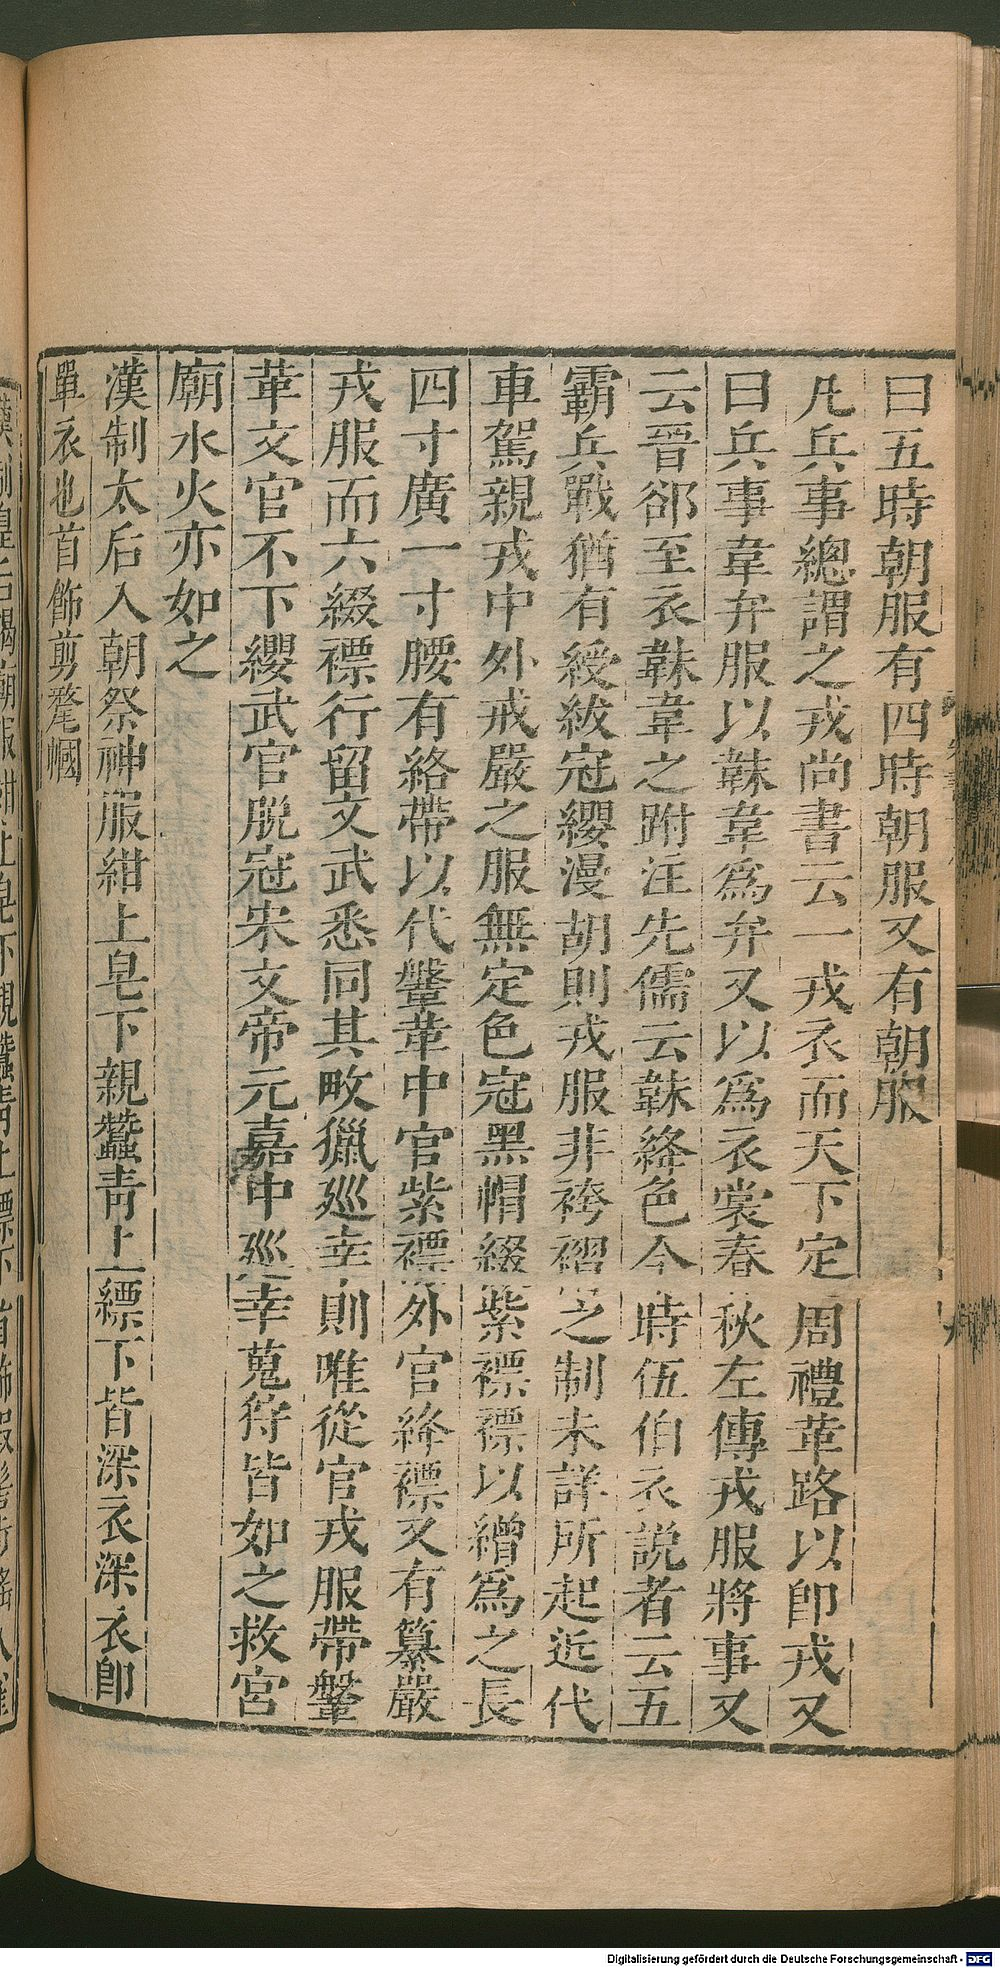 曰五時朝服有四時朝服又有朝服
凡兵事總謂之戎尚書云一戎衣而天下定周禮革路以即戎又
曰兵事韋弁服以韎韋爲弁又以爲衣裳春秋左傳戎服將事又
云晉郤至衣韎韋之跗注先儒云韎絳色今時伍伯衣説者云五
霸兵戰猶有綬紱冠纓漫胡則戎服非袴褶之制未詳所起近代
車駕親戎中外戒嚴之服無定色冠黑帽綴紫褾褾以繒爲之長
四寸廣一寸腰有絡帶以代鞶革中官紫褾外官絳褾又有纂嚴
戎服而六綴褾行留文武悉同其畋獵廵幸則唯從官戎服帶鞶
革文官不下纓武官脱冠宋文帝元嘉中廵幸蒐狩皆如之救宮
廟水火亦如之
漢制太后入朝祭神服紺上皂下親蠶青上縹下皆深衣深衣即
單衣也首飾剪氂幗
Digitalisierung gefördert durch die Deutsche Forschungsgemeinschaft - DFG